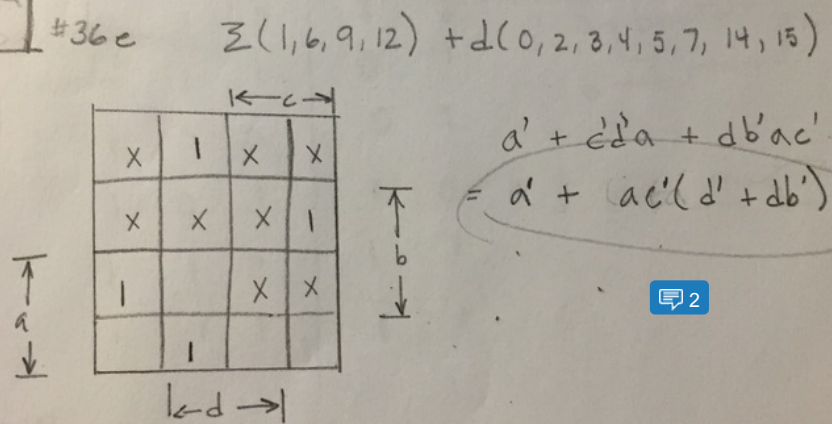 #36e Σ(1,6,9,12) + d(0,2,3,4,5,7, 14, 15)
c
X 1 X X
X X X 1
1 X X
1
a
b
d
a' + c'd'a + db'ac'
= a' + ac'(d' + db')
2